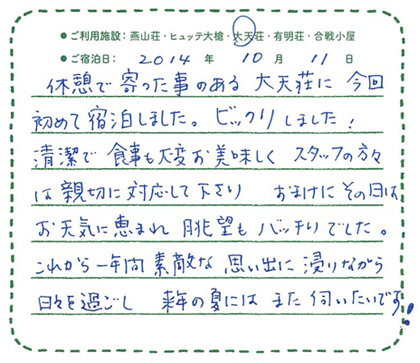 ●ご利用施設：燕山荘・ヒュッテ大槍・大天荘・有明荘・合戦小屋
●ご宿泊日： 2014年 10月 11日
休憩で寄った事のある 大天荘に 今回
初めて宿泊しました。ビックリしました!
清潔で 食事も大変お美味しく スタッフの方々
は親切に対応して下さり おまけにその日は、
お天気に恵まれ 眺望もバッチリでした。
これから一年間 素敵な 思い出に 浸りながら
日々を過ごし 来年の夏には また 伺いたいです!